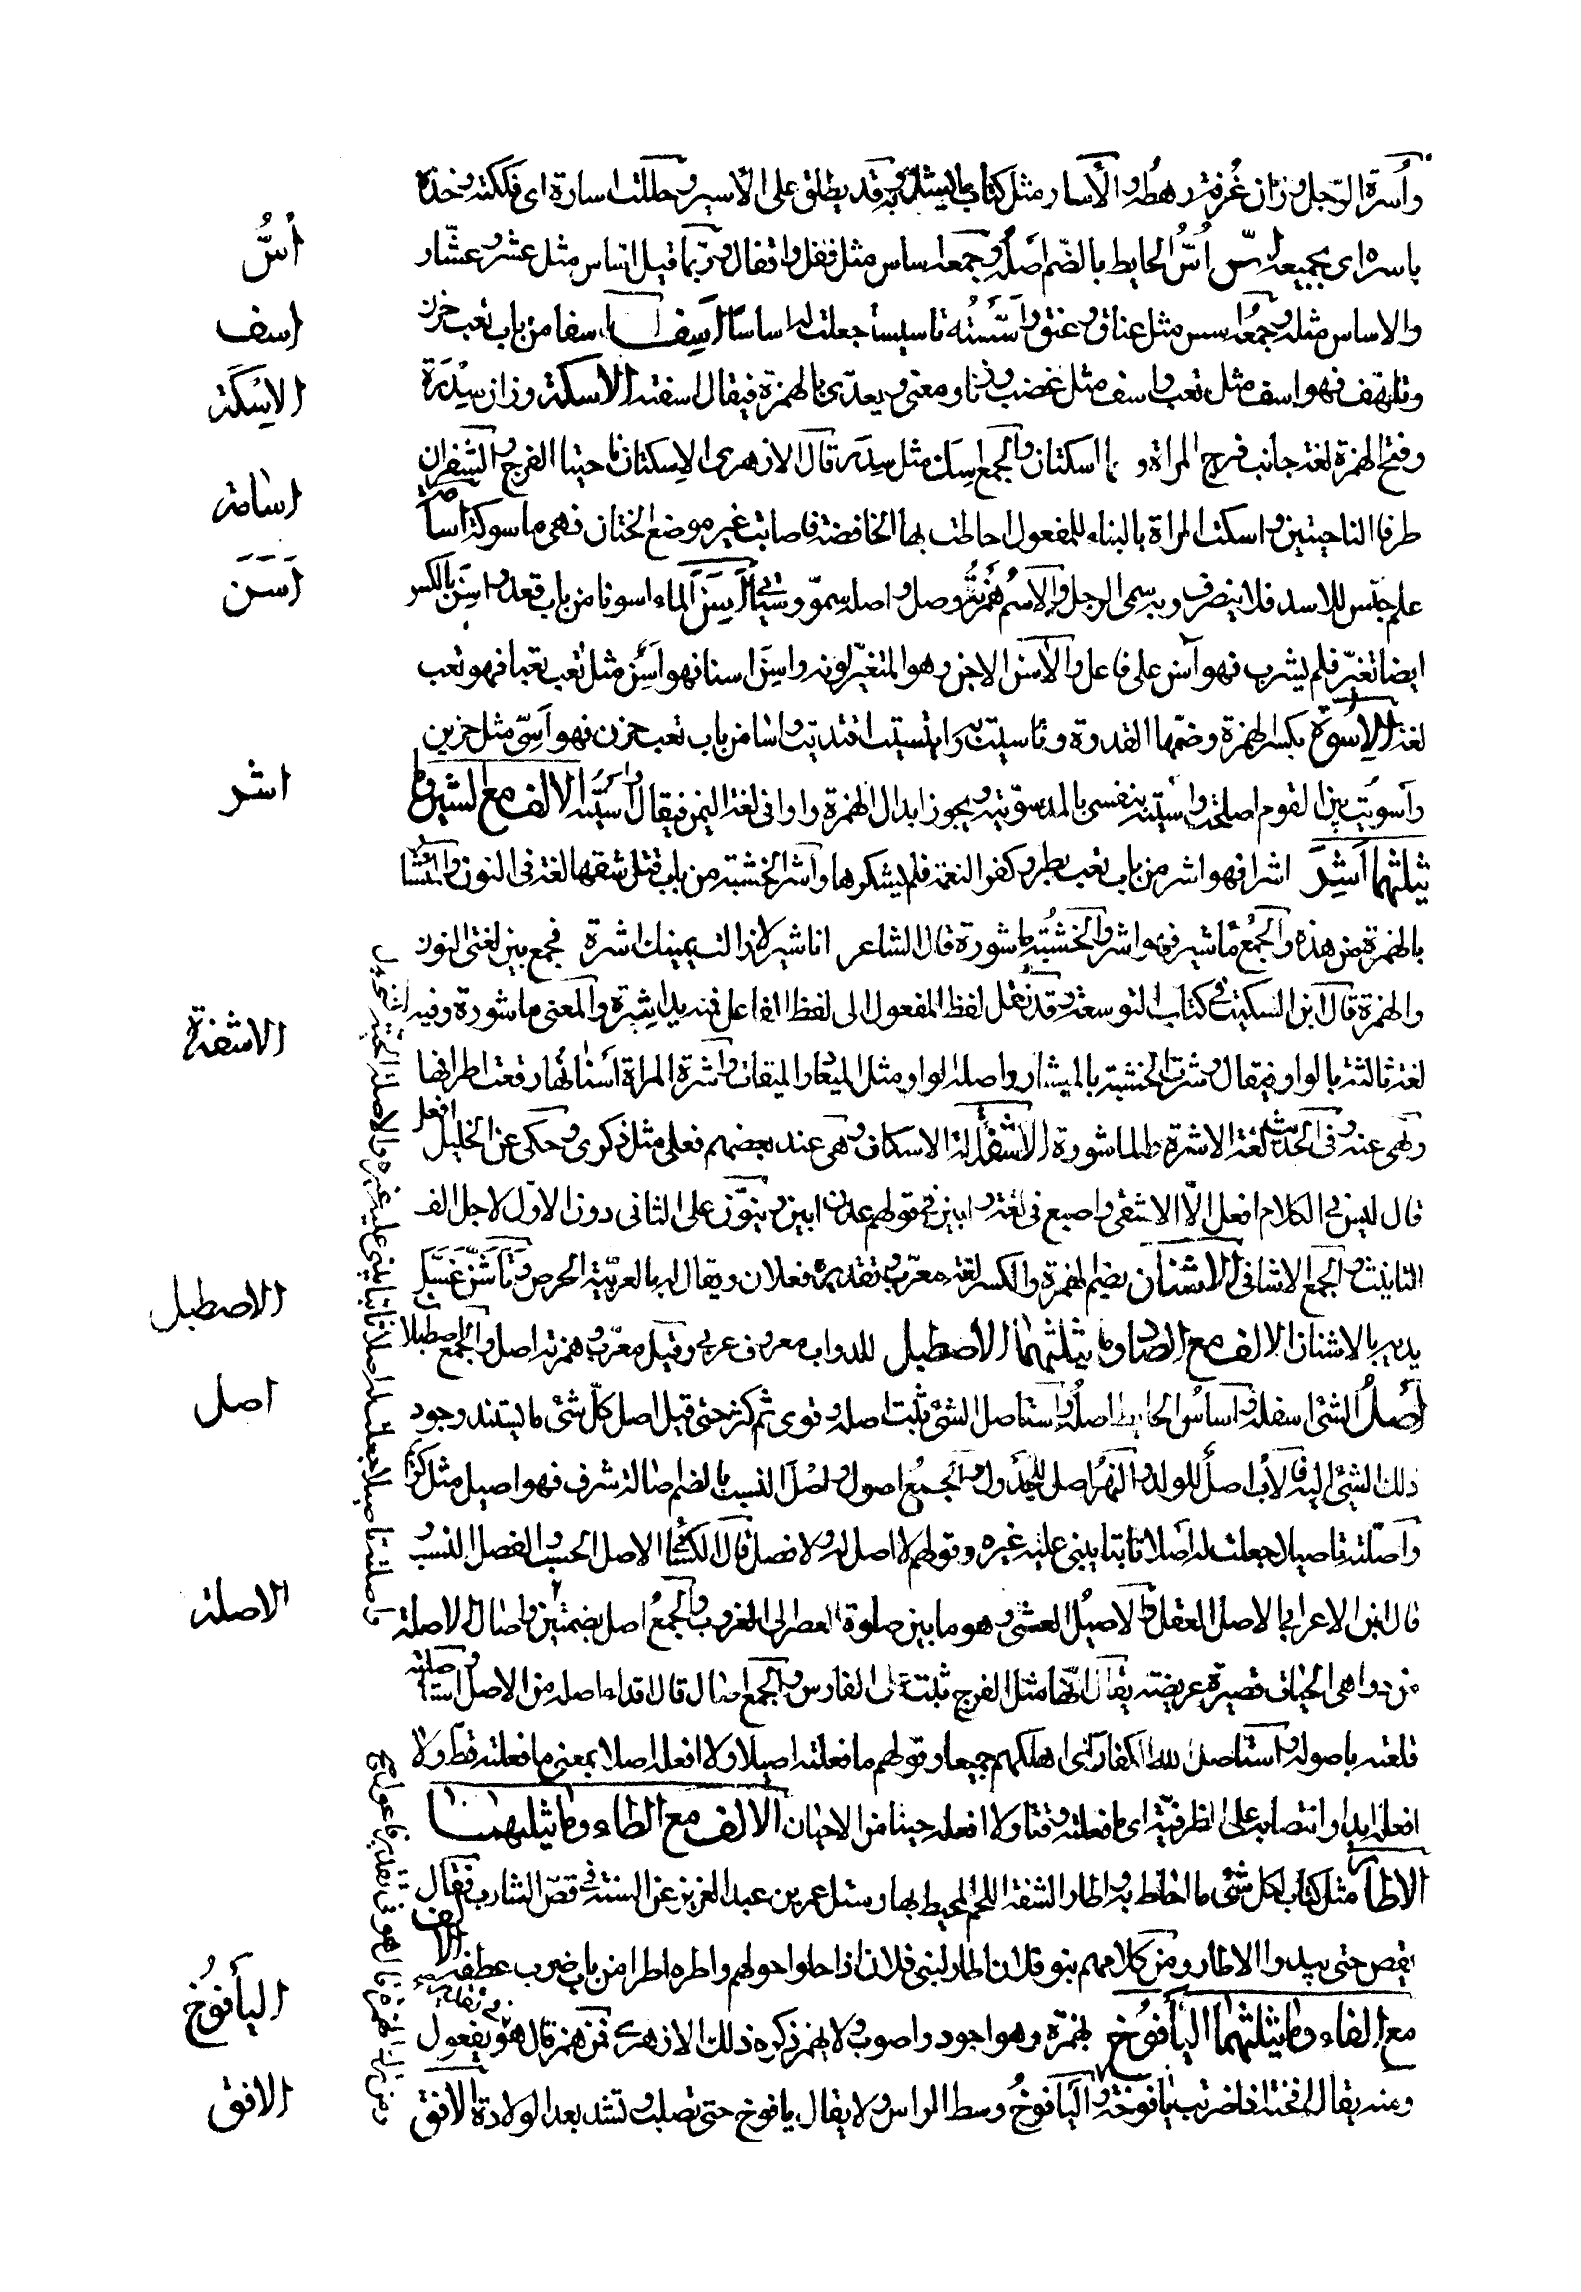 وأُسرة الرّجل وزان غُرفة رهطه والأسار مثل كتاب ما يشدّ به وقد يطلق على الأسير وحللت اساره اى فككته وخذه
باسره اى بجميعه اسّ اُسُّ الحايط بالضّم اَصله وجمعه اساس مثل قفل واقفال وربّما قيل اساس مثل عشّ وعشاش
والاساس مثله وجمعه اسس مثل عناق وعنق واَسّسته تاسيسا جعلت له اساسا اَسِفَ اسفا من باب تعب حزن
وتلهّف فهو اسف مثل تعب واسف مثل غضب وزنا ومعنى ويعدّى بالهمزة فيقال اسفته الاسكة وزان سِدْرَة
وفتح الهمزة لغة جانب فرج المراة وهما اسكتان والجمع اِسَك مثل سِدَر قال الازهرى الاسكتان ناحيتا الفرج والشفران
طرفا الناحيتين واسكت المراة بالبناء للمفعول اخطات بها الخافضة فاصابت غير موضع الختان فهى ماسوكة اسامة
علم جنس للاسد فلا ينصرف وبه سمى الرجل والاسم همزته وصل واصله سموّ وسياتى اَسَنَ الماء اسونا من باب قعد واسِن بالكسر
ايضا تغيّر فلم يشرب فهو آسن على فاعل والآسن الاجن وهو المتغيّر لونه واسِنَ اسنا فهو اَسِن مثل تعب تعبا فهو تعب
لغة الاِسوة بكسر الهمزة وضمّها القدوة وتاسيت به وايتسيت اقتديت واسا من باب تعب حزن فهو اَسِىّ مثل حزين
وأسوت بين القوم اصلحت وآسيته بنفسى بالمد سوّيته ويجوز ابدال الهمزة واوا فى لغة اليمن فيقال واسيته الالف مع الشين وما
يثلثهما اَشِرَ اشرا فهو اشر من باب تعب بطر وكفر النعمة فلم يشكرها واشر الخشبة من باب قتل شقها لغة فى النون والمئشار
بالهمزة من هذه والجمع مآشير فهو اشر والخشبة ماشورة قال الشاعر اناشير لازالت يمينك اشرة فجمع بين لغتى النون
والهمزة قال ابن السكيت فى كتاب التوسعة وقد نقل لفظ المفعول الى لفظ الفاعل فمنه يد اشِرة والمعنى ماشورة وفيه
لغة ثالثة بالواو فيقال وشرت الخشبة بالميشار واصله الواو مثل الميعاد والميقات واشرت المراة أسنانها رققت اطرافها
ونهى عنه وفى الحديث لعنة الاشرة والماشورة الاشفى آلة الاسكاف وهى عند بعضهم فعلى مثل ذكرى وحكى عن الخليل افعل
قال ليس فى الكلام افعل الّا الاشفى واصبع فى لغة وابين فى قولهم عدن ابين وينوّن على الثانى دون الاوّل لاجل الف
التانيث والجمع الاشافى الاشنان بضم الهمزة والكسر لغة معرّب وتقديره فعلان ويقال له بالعربيّة الحرض وتاشّن غسل
يديه بالاشنان الالف مع الصاد وما يثلثهما الاصطبل للدواب معروف عربى وقيل معرّب وهمزته اصل والجمع اصطبلات
اَصلُ الشئ اسفله واساس الحايط اصله واستاصل الشئ ثبت اصله وقوى ثم كثر حتى قيل اصل كلّ شئ ما يستند وجود
ذلك الشئ اليه فالأب اصلٌ للولد والنهر اصل للجدول والجمع اصول واصُل النسب بالضم اصالة شرف فهو اصيل مثل كريم
واصّلته تاصيلا جعلت له اصلا ثابتا يبنى عليه غيره وقولهم لا اصل له ولا فصل قال الكسائى الاصل الحسب والفصل النسب
قال ابن الاعرابى الاصل العقل والاصيل العشى وهو ما بين صلوة العصر الى الغروب والجمع اصل بضمتين واصال الاصلة
من دواهى الحيات قصيرة عريضة يقال انّها مثل الفرخ تثب على الفارس والجمع اصال قال القداء اصله من الاصل استاصلته
قلعته باصوله واستاصل الله الكفار اى اهلكهم جميعا وقولهم ما فعلته اصيلا ولا افعله اصلا بمعنى ما فعلته قط ولا
افعله ابدا وانتصابه على الظرفيّة اى ما فعلته وقتا ولا افعله حينا من الاحيان الالف مع الطاء وما يثلثهما
الاطار مثل كتاب لكل شئ ما احاط به واطار الشفة اللحم المحيط بها وسئل عمر بن عبد العزيز عن السنة فى قصّ الشارب فقال
يقص حتى يبدوا الاطار ومن كلامهم بنو فلان اطار لبنى فلان اذا حلوا حولهم واطره اطرا من باب ضرب عطفه الالف
مع الفاء وما يثلثهما اليأفوخ بهمزة وهو اجود واصوب ولا يهمز ذكره ذلك الازهرى فمن همز قال هو يفعول
ومنه يقال افخته اذا ضربت يافوخه واليأفوخُ وسط الراس ولا يقال يافوخ حتى يصلب وتشتد بعد الولادة الاُفق
أُسُّ
اسف
الاِسْكَة
اسامة
اَسَنَ
اشر
الاشفى
الاصطبل
اصل
الاصلة
اليأفوُخ
الافق
واصلته تاصيلا جعلت له اصلا ثابتا يبنى عليه غيره